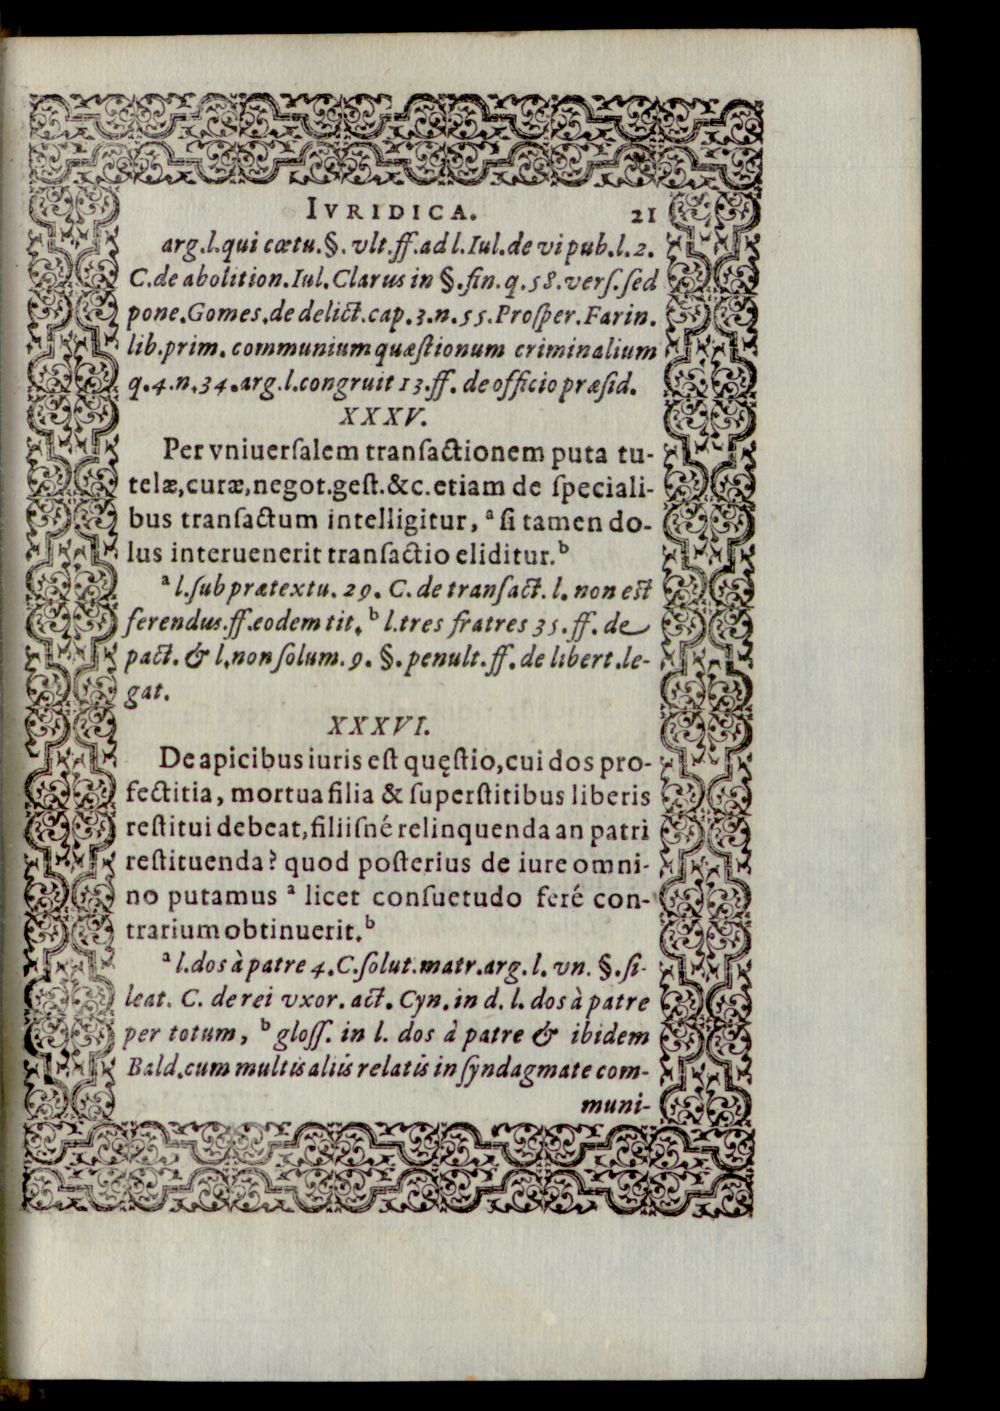 IVRIDICA. 21
arg.l.qui cœtu.§. vlt.ff.ad l.Iul.de vi pub.l.2.
C.de abolition.Iul.Clarus in §.fin.q.58.verſ.ſed
pone.Gomes.de delict.cap.3.n.55.Proſper.Farin.
lib.prim. communium quæſtionum criminalium
q.4.n.34.arg.l.congruit 13.ff. de officio præſid.
XXXV.
Per vniuerſalem tranſactionem puta tu-
telæ,curæ,negot.geſt.&c.etiam de ſpeciali-
bus tranſactum intelligitur, ᵃ ſi tamen do-
lus interuenerit tranſactio eliditur.ᵇ
ᵃ l.ſub prætextu. 29. C. de tranſact. l. non est
ferendus.ff.eodem tit. ᵇ l.tres fratres 35.ff. de
pact. & l.non ſolum. 9. §. penult.ff. de libert.le-
gat.
XXXVI.
De apicibus iuris eſt quęſtio,cui dos pro-
fectitia, mortua filia & ſuperſtitibus liberis
reſtitui debeat,filiiſné relinquenda an patri
reſtituenda? quod poſterius de iure omni-
no putamus ᵃ licet conſuetudo feré con-
trarium obtinuerit.ᵇ
ᵃ l.dos à patre 4.C.ſolut.matr.arg. l. vn. §.ſi-
leat. C. de rei vxor. act. Cyn. in d. l. dos à patre
per totum, ᵇ gloſſ. in l. dos à patre & ibidem
Bald.cum multis aliis relatis in ſyndagmate com-
muni-